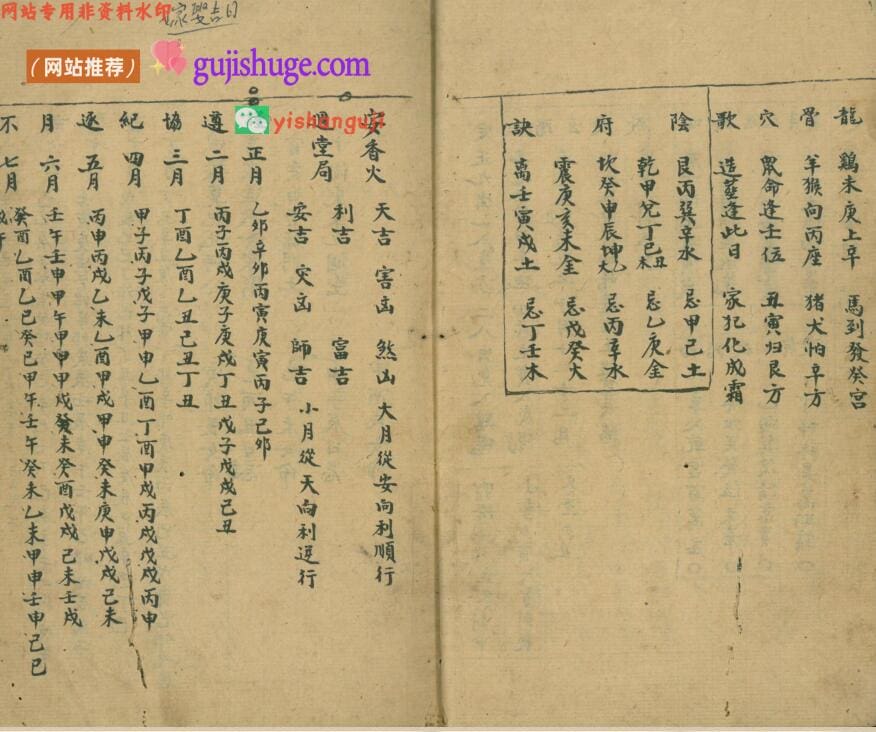 网站专用非资料水印
嫁娶吉日
（网站推荐）
gujishuge.com
yishanguji
龍 鷄未庚上辛 馬到發癸宮
骨 羊猴向丙座 猪犬怕辛方
穴 鼠命逢壬位 丑寅归艮方
歌 造葬逢此日 家犯化成霜
陰 艮丙巽辛水 忌甲己土
乾甲兌丁巳丑未 忌乙庚金
府 坎癸申辰坤乙火 忌丙辛水
震庚亥未金 忌戊癸火
訣 离壬寅戌土 忌丁壬木
安香火 天吉 害凶 煞凶 大月從安向利順行
過堂局 利吉 富吉
安吉 灾凶 師吉 小月從天向利逆行
正月 乙卯辛卯丙寅庚寅丙子己卯
遵 二月 丙子丙戌庚子庚戌丁丑戊子戊戌己丑
協 三月 丁酉乙酉乙丑己丑丁丑
紀 四月 甲子丙子戊子甲申乙酉丁酉甲戌丙戌戊戌丙申
逐 五月 丙申丙戌乙未乙酉甲戌甲申癸未庚申戊戌己未
月 六月 壬午壬申甲午甲申甲戌癸未癸酉戊戌己未壬戌
不 七月 癸酉乙酉乙巳癸巳甲午壬午癸未乙未甲申壬申己巳